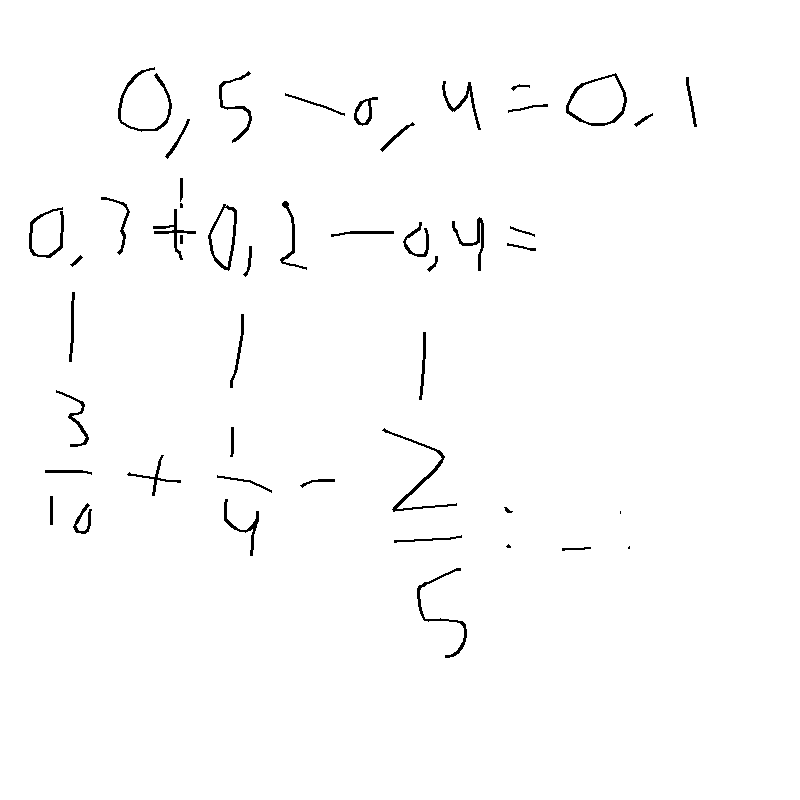 0,5 - 0,4 = 0,1
0,3 + 0,2 - 0,4 =
3/10 + 1/4 - 2/5